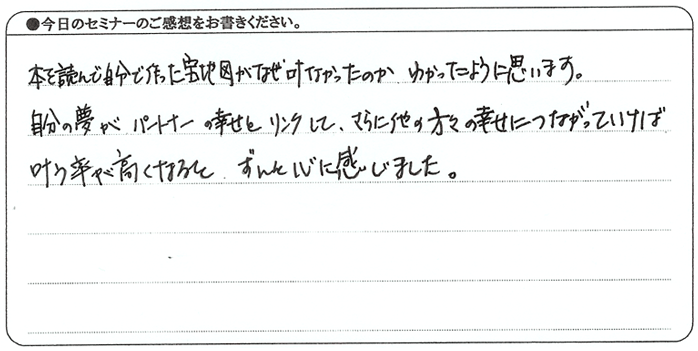 ●今日のセミナーのご感想をお書きください。
本を読んで自分で作った宝地図がなぜ叶なかったのか わかったように思います。
自分の夢が パートナーの幸せと リンクして、さらに他の方々の幸せにつながっていけば
叶う率が高くなると ずんと心に感じました。